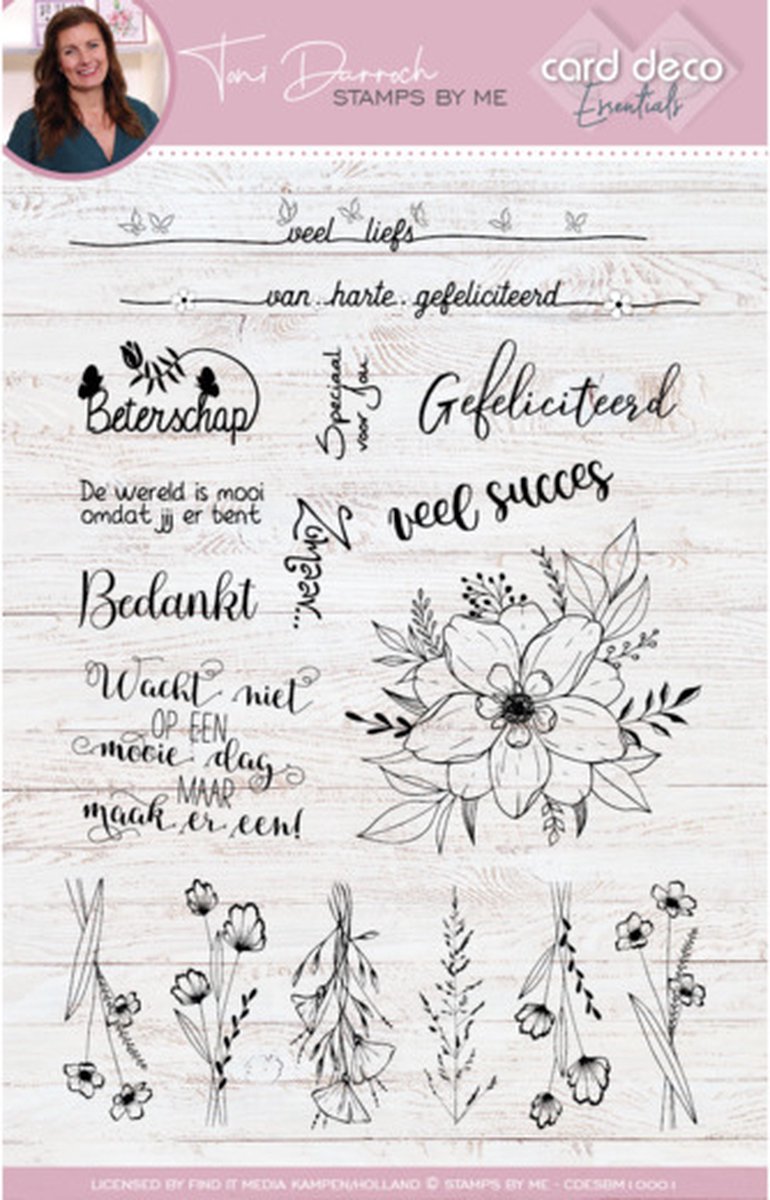 Toni Darroch
STAMPS BY ME
card deco
Essentials
veel liefs
van harte gefeliciteerd
Beterschap
Speciaal
voor jou
Gefeliciteerd
De wereld is mooi
omdat jij er bent
veel succes
Bedankt
Wacht niet
OP EEN
mooie dag
MAAR
maak er een!
LICENSED BY FIND IT MEDIA KAMPEN/HOLLAND © STAMPS BY ME - CDESBM10001